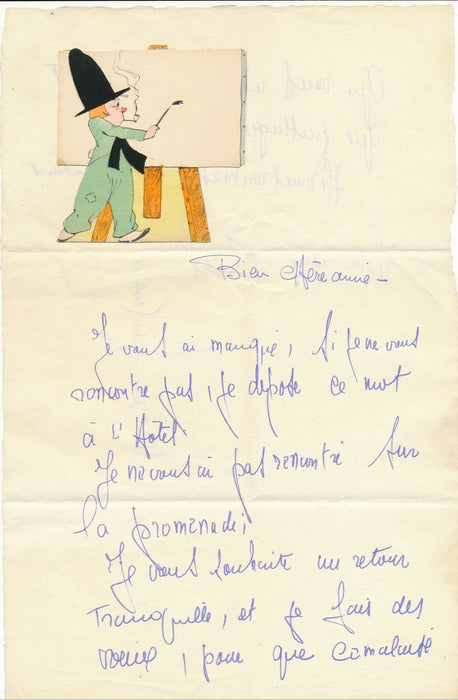 Bien chère amie -
Je vous ai manqué, si je ne vous
rencontre pas, je dépose ce mot
à l'Hotel
Je ne vous ai pas rencontré sur
la promenade,
Je vous souhaite un retour
Tranquille, et je fais des
voeux, pour que